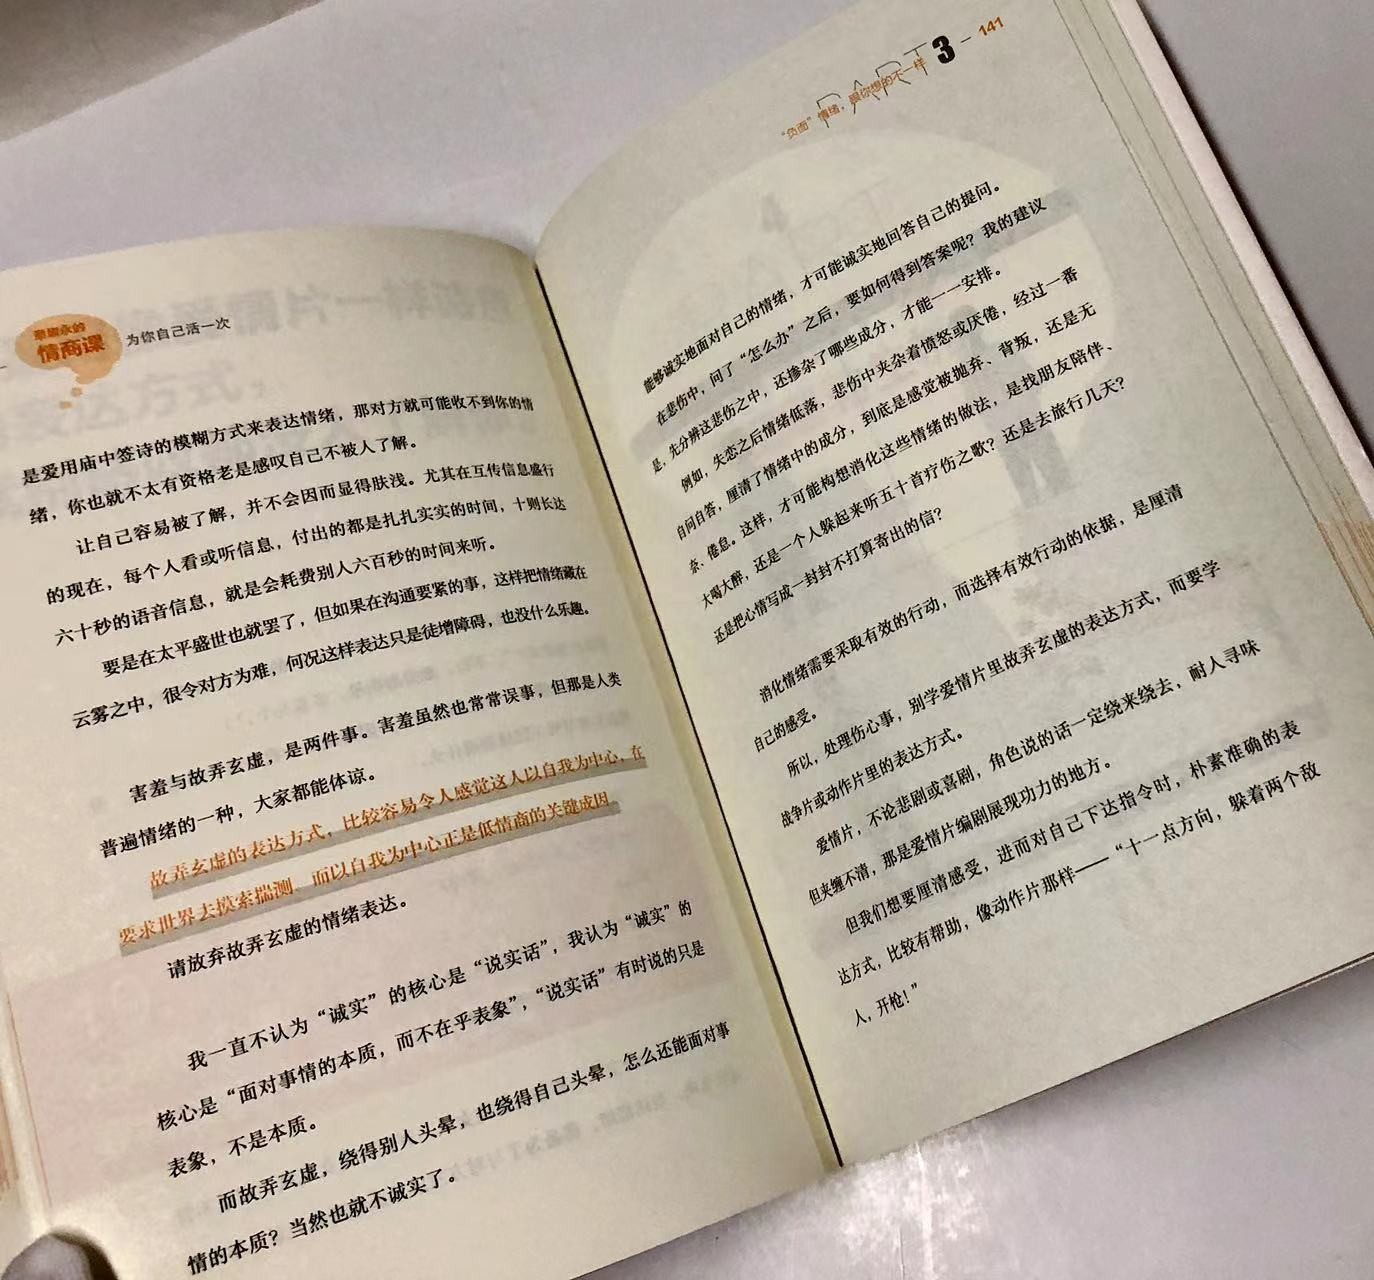 蔡康永的
情商课
为你自己活一次
是爱用庙中签诗的模糊方式来表达情绪，那对方就可能收不到你的情
绪，你也就不太有资格老是感叹自己不被人了解。
让自己容易被了解，并不会因而显得肤浅。尤其在互传信息盛行
的现在，每个人看或听信息，付出的都是扎扎实实的时间，十则长达
六十秒的语音信息，就是会耗费别人六百秒的时间来听。
要是在太平盛世也就罢了，但如果在沟通要紧的事，这样把情绪藏在
云雾之中，很令对方为难，何况这样表达只是徒增障碍，也没什么乐趣。
害羞与故弄玄虚，是两件事。害羞虽然也常常误事，但那是人类
普遍情绪的一种，大家都能体谅。
故弄玄虚的表达方式，比较容易令人感觉这人以自我为中心，在
要求世界去摸索揣测，而以自我为中心正是低情商的关键成因。
请放弃故弄玄虚的情绪表达。
我一直不认为“诚实”的核心是“说实话”，我认为“诚实”的
核心是“面对事情的本质，而不在乎表象”，“说实话”有时说的只是
表象，不是本质。
而故弄玄虚，绕得别人头晕，也绕得自己头晕，怎么还能面对事
情的本质？当然也就不诚实了。
“负面”情绪，跟你想的不一样
PART
3 — 141
能够诚实地面对自己的情绪，才可能诚实地回答自己的提问。
在悲伤中，问了“怎么办”之后，要如何得到答案呢？我的建议
是，先分辨这悲伤之中，还掺杂了哪些成分，才能一一安排。
例如，失恋之后情绪低落，悲伤中夹杂着愤怒或厌倦，经过一番
自问自答，厘清了情绪中的成分，到底是感觉被抛弃、背叛，还是无
奈、倦怠。这样，才可能构想消化这些情绪的做法，是找朋友陪伴、
大喝大醉，还是一个人躲起来听五十首疗伤之歌？还是去旅行几天？
还是把心情写成一封封不打算寄出的信？
消化情绪需要采取有效的行动，而选择有效行动的依据，是厘清
自己的感受。
所以，处理伤心事，别学爱情片里故弄玄虚的表达方式，而要学
战争片或动作片里的表达方式。
爱情片，不论悲剧或喜剧，角色说的话一定绕来绕去，耐人寻味
但夹缠不清，那是爱情片编剧展现功力的地方。
但我们想要厘清感受，进而对自己下达指令时，朴素准确的表
达方式，比较有帮助，像动作片那样——“十一点方向，躲着两个敌
人，开枪！”